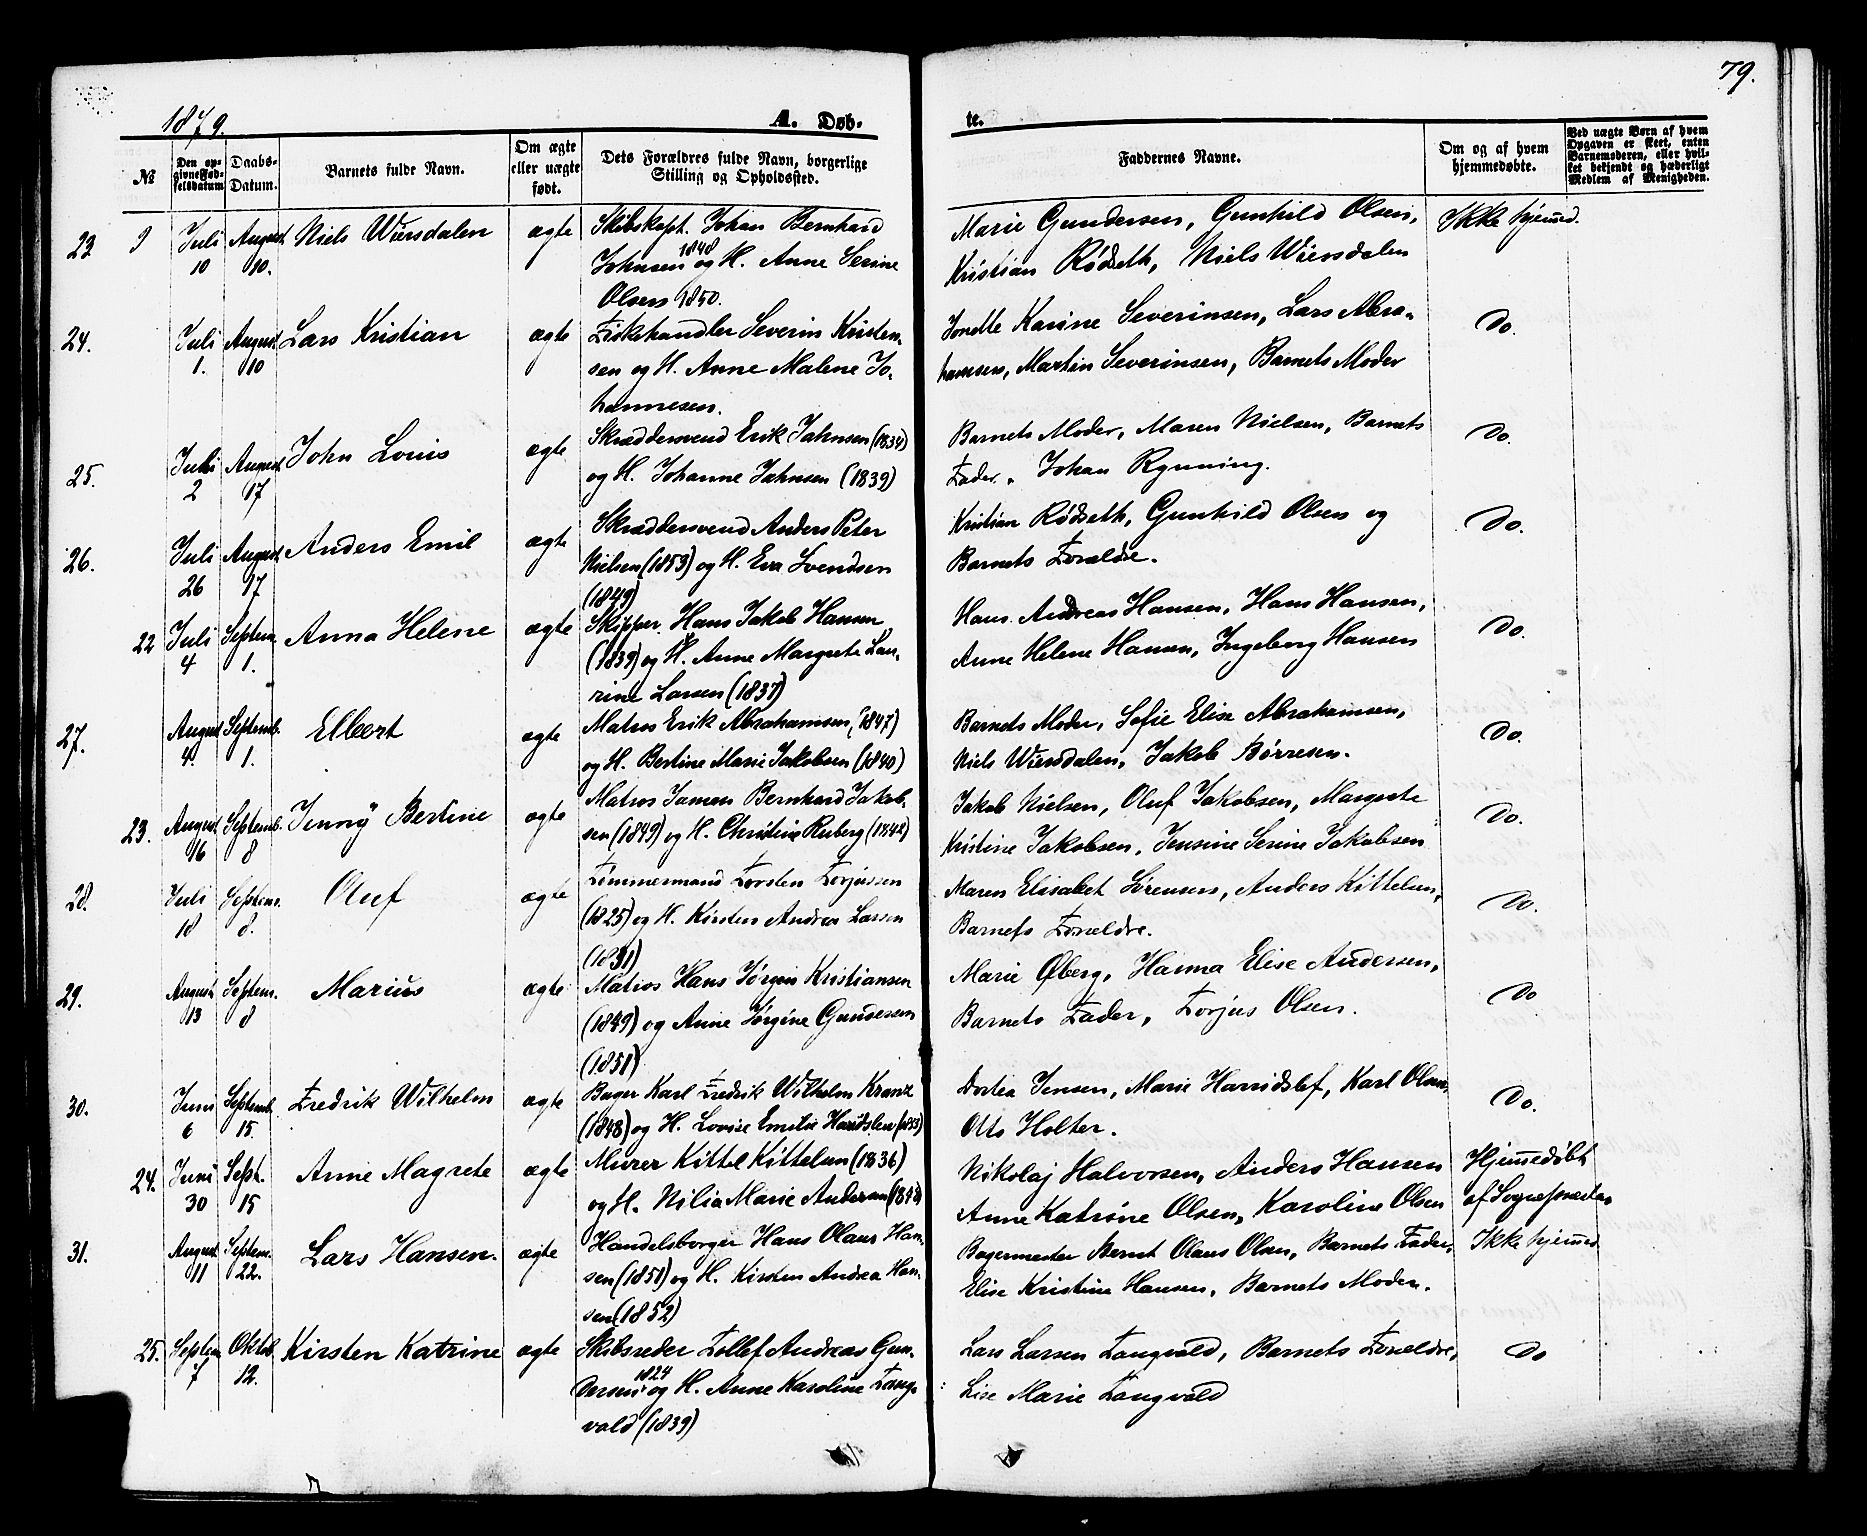 79.
1879.
A. Døb-
te.
№
Den op-
givne Fød-
selsdatum
Daabs-
Datum.
Barnets fulde Navn.
Om ægte
eller uægte
født.
Dets Forældres fulde Navn, borgerlige
Stilling og Opholdssted.
Faddernes Navne.
Om og af hvem
hjemmedøbte.
Ved uægte Børn af hvem
Opgaven er skeet, enten
Barnemoderen, eller hvil-
ket bekjendt og hæderligt
Medlem af Menigheden.
23 Juli 10 August 10. Niels Wiersdalen ægte Skibskapt. Johan Bernhard
Johnsen 1848 og H. Anne Serine
Olsen 1850.
Marie Gundersen, Gunhild Olsen,
Kristian Rødseth, Niels Wiersdalen
Ikke hjemmed.
24. Juli 1. August 10 Lars Kristian ægte Fiskehandler Severin Kristen-
sen og H. Anne Malene Jo-
hannesen.
Karine Severinsen, Lars Abra-
hamsen, Martin Severinsen, Barnets Moder
Do.
25. Juli 2 August 17 John Louis ægte Skræddersvend Erik Jahnsen (1834)
og H. Johanne Jahnsen (1839)
Barnets Moder, Maren Nielsen, Barnets
Fader, Johan Rynning.
Do.
26. Juli 26 August 17 Anders Emil ægte Skræddersvend Anders Peter
Nielsen (1853) og H. Eva Svendsen
(1849)
Kristian Rødseth, Gunhild Olsen og
Barnets Forældre.
Do.
22 Juli 4 Septem. 1. Anna Helene ægte Skipper Hans Jakob Hansen
(1839) og H. Anne Margrete Lau-
rine Larsen (1837)
Hans Andreas Hansen, Hans Hansen,
Anne Helene Hansen, Ingeborg Hansen
Do.
27. August 4. Septemb. 1. Elbert ægte Matros Erik Abrahamsen, (1847)
og H. Bertine Marie Jakobsen (1840)
Barnets Moder, Sofie Elise Abrahamsen,
Niels Wiersdalen, Jakob Børresen.
Do.
23. August 16 Septemb. 8 Jenny Bertine ægte Matros Jaman Bernhard Jakob-
sen (1849) og H. Christine Ruberg (1842)
Jakob Nielsen, Oluf Jakobsen, Margrete
Kristine Jakobsen, Jensine Serine Jakobsen
Do.
28. Juli 18 Septem. 8. Oluf ægte Tømmermand Torsten Torjussen
(1825) og H. Kirsten Andrea Larsen
(1831)
Maren Elisabet Sørensen, Anders Kittelsen,
Barnets Forældre.
Do.
29. August 13 Septem. 8 Marius ægte Matros Hans Jørgen Kristiansen
(1849) og Anne Jørgine Gundersen
(1851)
Marie Øberg, Hanna Elise Andersen,
Barnets Fader, Torjus Olsen.
Do
30. Juni 6 Septemb. 15. Fredrik Wilhelm ægte Bager Karl Fredrik Wilhelm Kranz
(1848) og H. Lovise Emilie (1853)
Dortea Jensen, Marie Karl Olsen,
Otto Holter.
Do.
24. Juni 30 Sept. 15 Anne Magrete ægte Murer Kittel Kittelsen (1836)
og H. Nilia Marie Andersen (1843)
Nikolaj Halvorsen, Anders Hansen
Anne Katrine Olsen, Karoline Olsen
Hjemmedøbt
af Sognepræsten
31. August 11 Septem. 22. Lars Hansen. ægte Handelsborger Hans Olaus Han-
sen (1851) og H. Kirsten Andrea Han-
sen (1852)
Bagermester Bernt Olaus Olsen, Barnets Fader,
Elise Kristine Hansen, Barnets Moder.
Ikke hjemmed
25. Septem 7 Oktob. 12. Kirsten Katrine ægte Skibsreder Tollef Andreas Gun-
dersen 1824 og H. Anne Karoline Tang-
vald (1839)
Lars Larsen Tangvald, Barnets Forældre,
Lise Marie Tangvald
Do